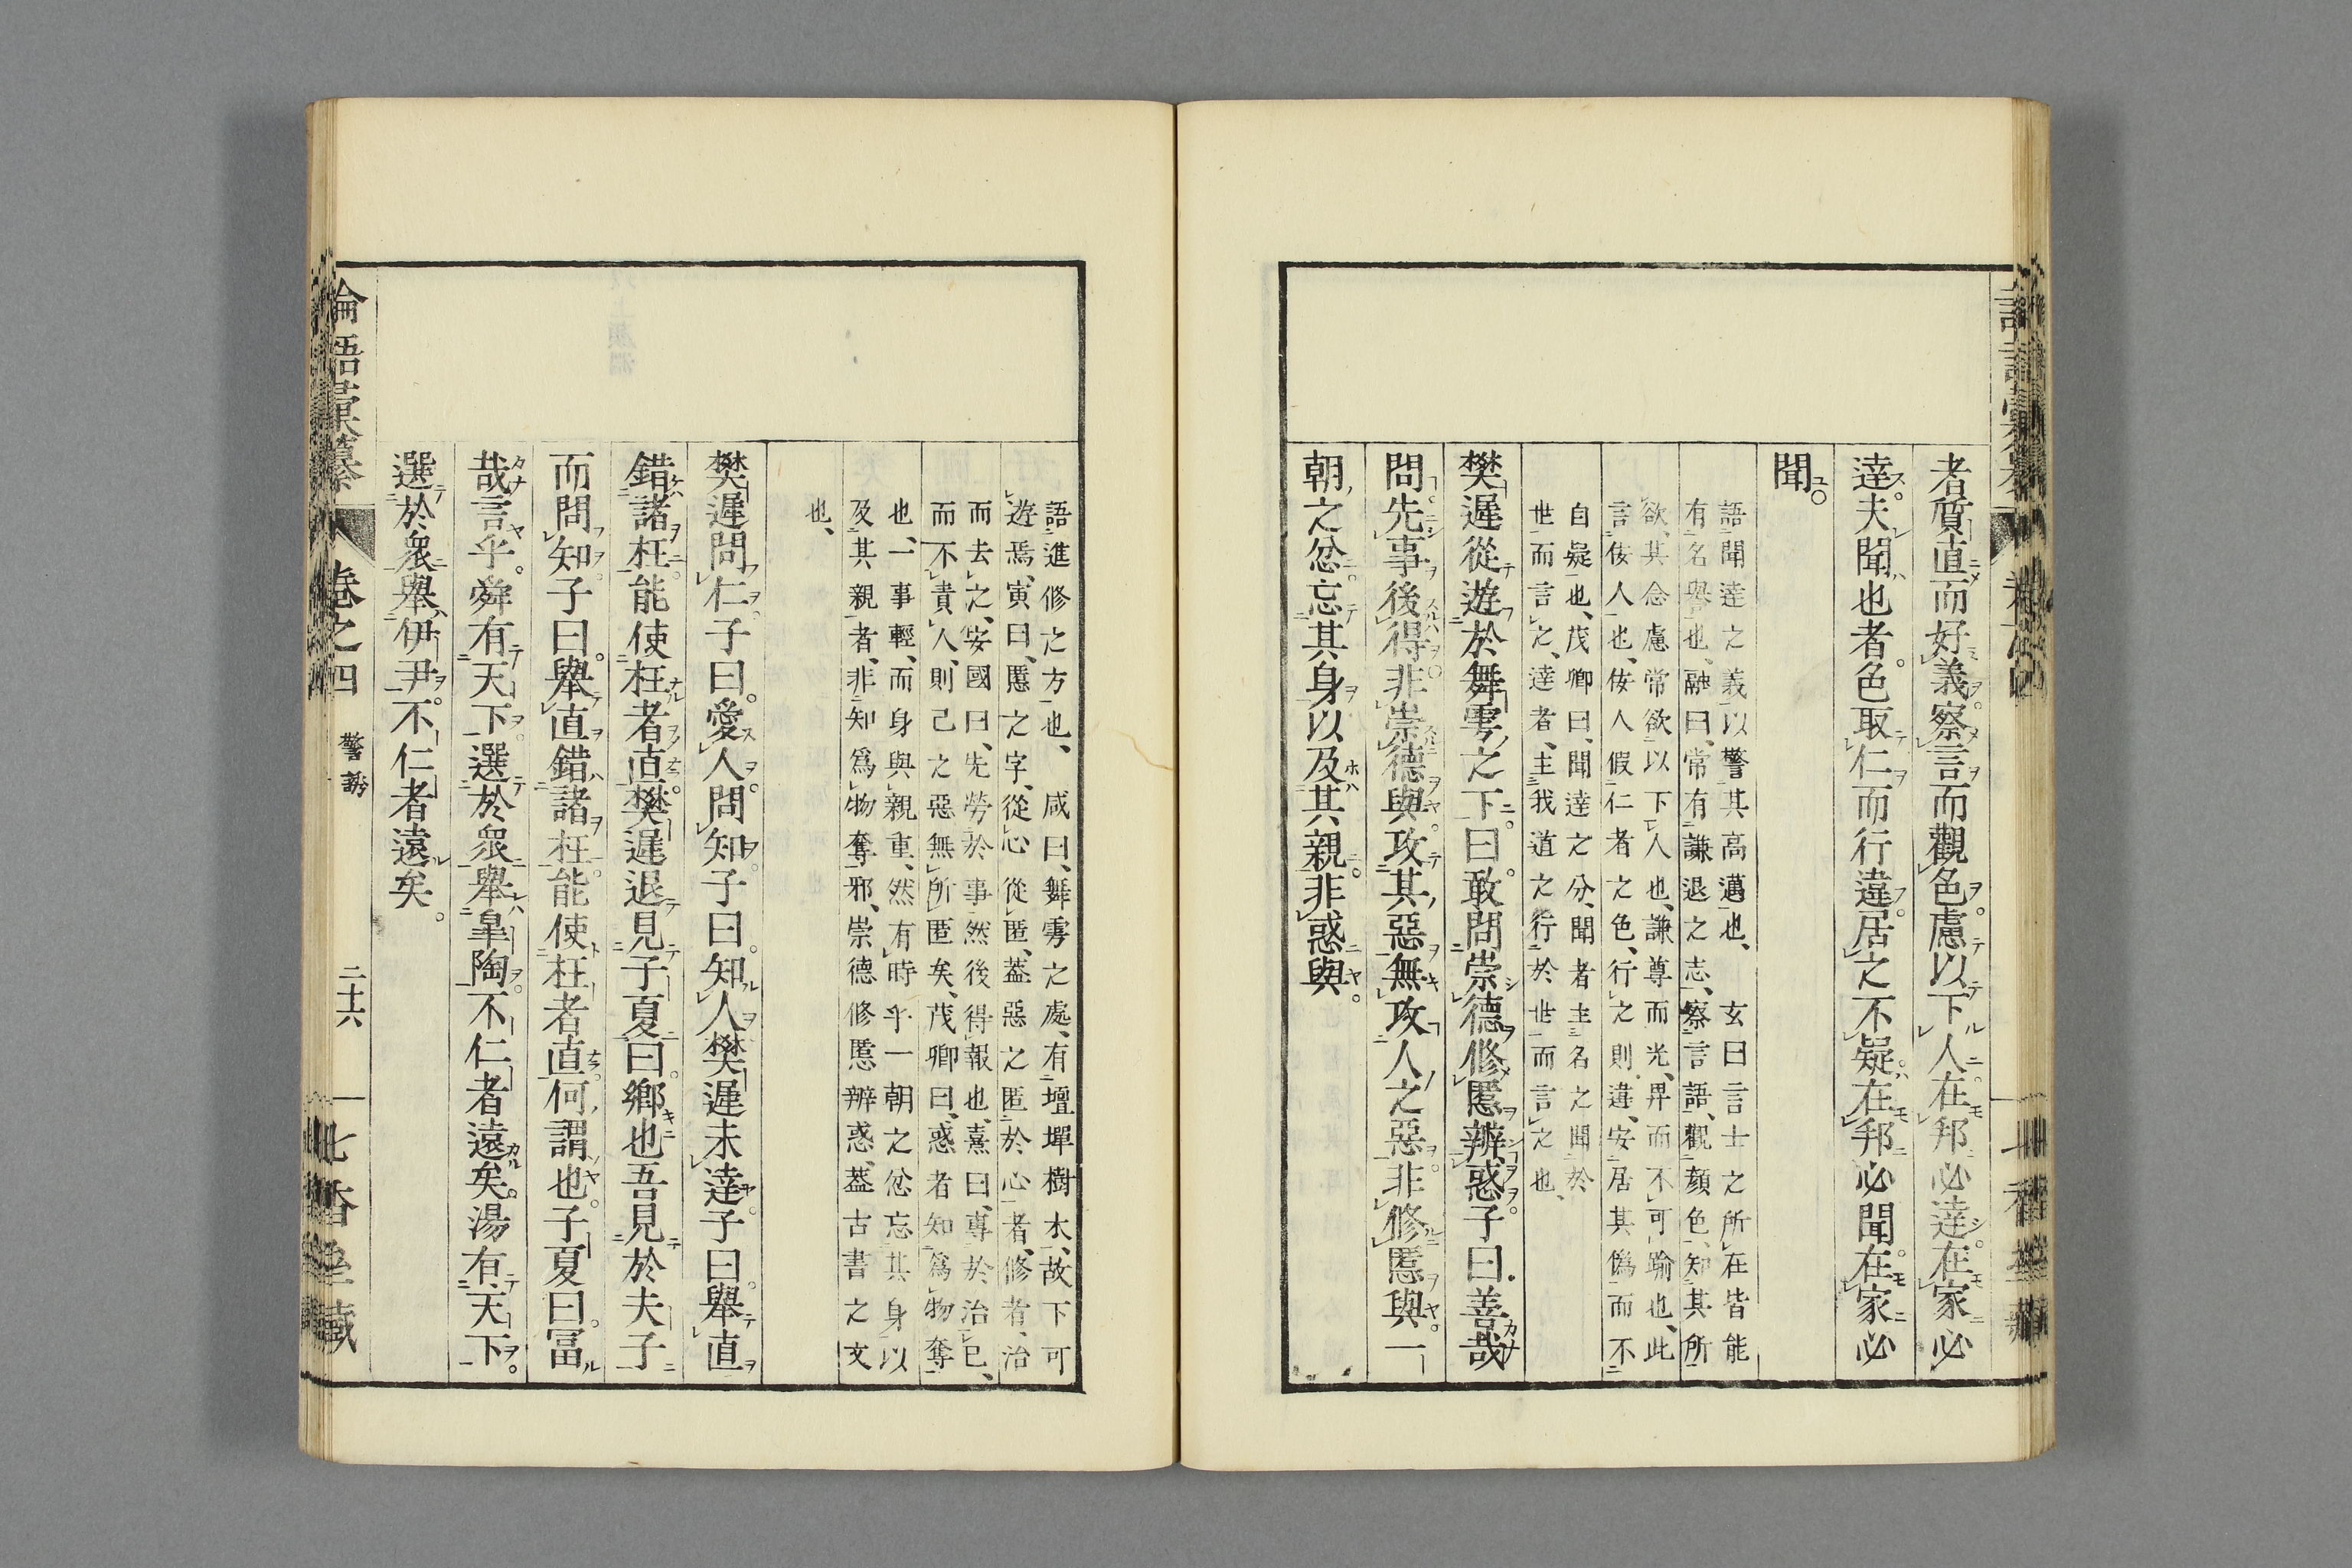 者質直而好義察言而觀色慮以下人在邦必達在家必
達夫聞也者色取仁而行違居之不疑在邦必聞在家必
聞
語聞達之義以警其高邁也、玄曰言士之所在皆能
有名譽也、融曰、常有謙退之志、察言語、觀顏色、知其所
欲、其念慮常欲以下人也、謙尊而光、卑而不可踰也、此
言佞人也、佞人假仁者之色、行之則違、安居其僞而不
自疑也、茂卿曰、聞達之分、聞者主名之聞於
世而言之、達者、主我道之行於世而言之也、
樊遲從遊於舞雩之下曰。敢問崇德修慝辨惑子曰善哉
問先事後得非崇德與攻其惡無攻人之惡非修慝與一
朝之忿忘其身以及其親非惑與。
語進修之方也、咸曰、舞雩之處、有壇墠樹木、故下可
遊焉、寅曰、慝之字、從心從匿、蓋惡之匿於心者、修者、治
而去之、安國曰、先勞於事、然後得報也、熹曰、專於治己、
而不責人、則己之惡無所匿矣、茂卿曰、惑者知爲物奪
也、一事輕、而身與親重、然有時乎一朝之忿忘其身以
及其親者、非知爲物奪邪、崇德修慝辨惑、蓋古書之文
也、
樊遲問仁子曰。愛人。問知子曰。知人樊遲未達子曰。舉直
錯諸枉能使枉者直樊遲退見子夏曰。鄉也吾見於夫子
而問知子曰。舉直錯諸枉能使枉者直何謂也。子夏曰。富
哉言乎。舜有天下選於衆舉皐陶不仁者遠矣。湯有天下
選於衆舉伊尹不仁者遠矣。
論語彙纂 卷之四 警誨 二十六 七香堂藏